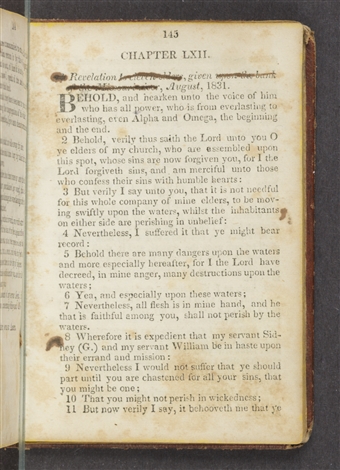 143
CHAPTER LXII.
Revelation to eleven elders, given upon the bank
of the Missouri river, August, 1831.
BEHOLD, and hearken unto the voice of him
who has all power, who is from everlasting to
everlasting, even Alpha and Omega, the beginning
and the end.
2 Behold, verily thus saith the Lord unto you O
ye elders of my church, who are assembled upon
this spot, whose sins are now forgiven you, for I the
Lord forgiveth sins, and am merciful unto those
who confess their sins with humble hearts:
3 But verily I say unto you, that it is not needful
for this whole company of mine elders, to be mov-
ing swiftly upon the waters, whilst the inhabitants
on either side are perishing in unbelief:
4 Nevertheless, I suffered it that ye might bear
record:
5 Behold there are many dangers upon the waters
and more especially hereafter, for I the Lord have
decreed, in mine anger, many destructions upon the
waters;
6 Yea, and especially upon these waters;
7 Nevertheless, all flesh is in mine hand, and he
that is faithful among you, shall not perish by the
waters.
8 Wherefore it is expedient that my servant Sid-
ney (G.) and my servant William be in haste upon
their errand and mission:
9 Nevertheless I would not suffer that ye should
part until you are chastened for all your sins, that
you might be one;
10 That you might not perish in wickedness;
11 But now verily I say, it behooveth me that ye